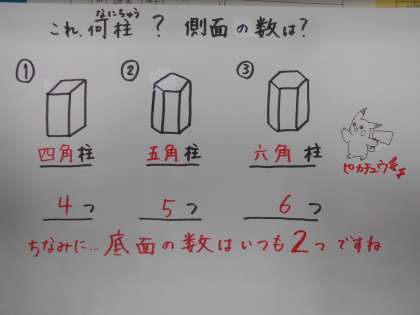 なにちゅう
これ、何柱 ? 側面の数は?
① ② ③
四角柱 五角柱 六角柱
ピカチュウ
4つ 5つ 6つ
ちなみに…底面の数はいつも2つですね